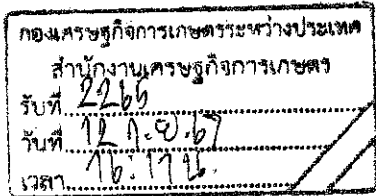 กองเศรษฐกิจการเกษตรระหว่างประเทศ
สำนักงานเศรษฐกิจการเกษตร
รับที่ 2265
วันที่ 12 ก.ย. 67
เวลา 16:17 น.